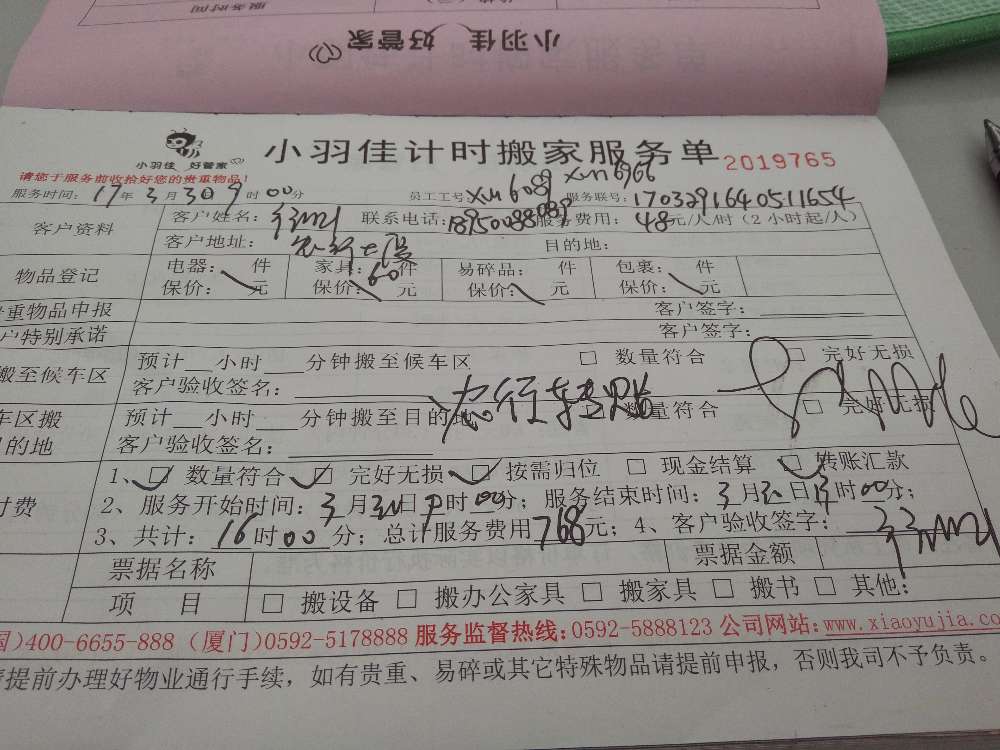 服务时间
小羽佳 好管家
小羽佳 好管家
小羽佳计时搬家服务单 2019765
请您于服务前收拾好您的贵重物品!
服务时间: 17年3月30日9时00分 员工工号: XM6089 XM6966 服务联号: 1703291640511654
客户资料 客户姓名: 联系电话: 18950088089 服务费用: 48元/人/时(2小时起/人)
客户地址: 目的地:
物品登记 电器: 件 家具: 60件 易碎品: 件 包裹: 件
保价: 元 保价: 元 保价: 元 保价: 元
重物品申报 客户签字:
户特别承诺 客户签字:
搬至候车区 预计 小时 分钟搬至候车区 □ 数量符合 □ 完好无损
客户验收签名:
车区搬 预计 小时 分钟搬至目的地 数量符合 □ 完好无损
目的地 客户验收签名:
银行转账
付费 1、☑ 数量符合 ☑ 完好无损 ☑ 按需归位 □ 现金结算 ☑ 转账汇款
2、服务开始时间: 3月30日9时00分; 服务结束时间: 3月30日 时00分;
3、共计: 16时00分; 总计服务费用768元; 4、客户验收签字:
票据名称 票据金额
项 目 □ 搬设备 □ 搬办公家具 □ 搬家具 □ 搬书 □ 其他:
国)400-6655-888 (厦门)0592-5178888 服务监督热线:0592-5888123 公司网站:www.xiaoyujia.co
提前办理好物业通行手续，如有贵重、易碎或其它特殊物品请提前申报，否则我司不予负责。